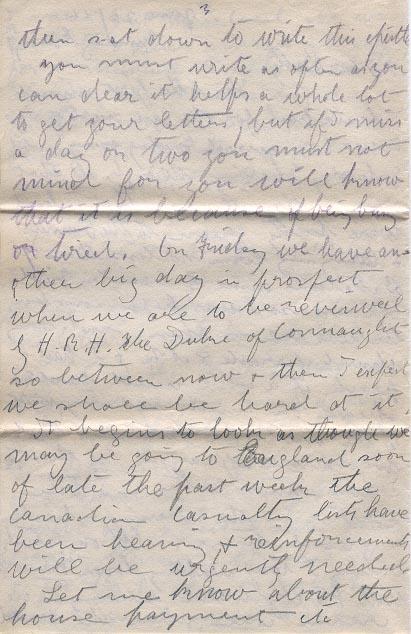 3
then sat down to write this epistle
you must write as often as you
can dear it helps a whole lot
to get your letters, but if I miss
a day or two you must not
mind for you will know
that it is because of being busy
or tired. On Friday we have an-
other big day in prospect
when we are to be reviewed
by H.R.H. The Duke of Connaught
so between now + then I expect
we shall be hard at it.
It begins to look as though we
may be going to England soon
of late the past week the
canadian casualty lists have
been heavy, & reinforcements
will be urgently needed
Let me know about the
house payment etc